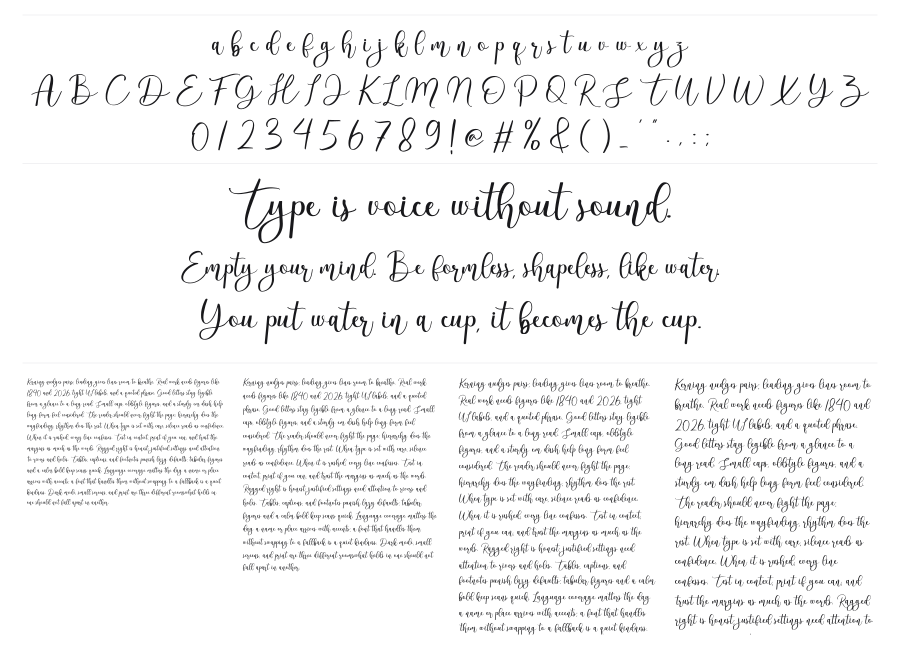 a b c d e f g h i j k l m n o p q r s t u v w x y z
A B C D E F G H I J K L M N O P Q R S T U V W X Y Z
0 1 2 3 4 5 6 7 8 9 ! @ # % & ( ) _ ' " . , : ;
Type is voice without sound.
Empty your mind. Be formless, shapeless, like water.
You put water in a cup, it becomes the cup.
Kerning nudges pairs; leading gives lines room to breathe. Real work needs figures like
1840 and 2026, tight UI labels, and a quoted phrase. Good letters stay legible
from a glance to a long read. Small caps, oldstyle figures, and a sturdy em dash help
long form feel considered. The reader should never fight the page; hierarchy does the
wayfinding, rhythm does the rest. When type is set with care, silence reads as confidence.
When it is rushed, every line confesses. Test in context, print if you can, and trust the
margins as much as the words. Ragged right is honest; justified settings need attention
to rivers and holes. Tables, captions, and footnotes punish lazy defaults; tabular figures
and a calm bold keep scans quick. Language coverage matters the day a name or place
arrives with accents; a font that handles them without swapping to a fallback is a quiet
kindness. Dark mode, small screens, and print are three different rooms
Kerning nudges pairs; leading gives lines room to breathe. Real work
needs figures like 1840 and 2026, tight UI labels, and a quoted
phrase. Good letters stay legible from a glance to a long read. Small
caps, oldstyle figures, and a sturdy em dash help long form feel
considered. The reader should never fight the page; hierarchy does the
wayfinding, rhythm does the rest. When type is set with care, silence
reads as confidence. When it is rushed, every line confesses. Test in
context, print if you can, and trust the margins as much as the words.
Ragged right is honest; justified settings need attention to rivers and
holes. Tables, captions, and footnotes punish lazy defaults; tabular
figures and a calm bold keep scans quick. Language coverage matters the
day a name or place arrives with accents; a font that handles them
without swapping to a fallback is a quiet kindness. Dark mode, small
screens, and print are three different rooms
fall apart in another.
Kerning nudges pairs; leading gives lines room to breathe.
Real work needs figures like 1840 and 2026, tight
UI labels, and a quoted phrase. Good letters stay legible
from a glance to a long read. Small caps, oldstyle
figures, and a sturdy em dash help long form feel
considered. The reader should never fight the page;
hierarchy does the wayfinding, rhythm does the rest.
When type is set with care, silence reads as confidence.
When it is rushed, every line confesses. Test in context,
print if you can, and trust the margins as much as the
words. Ragged right is honest; justified settings need
attention to rivers and holes. Tables, captions, and
footnotes punish lazy defaults; tabular figures and a calm
bold keep scans quick. Language coverage matters the day
a name or place arrives with accents; a font that handles
them without swapping to a fallback is a quiet kindness.
Kerning nudges pairs; leading gives lines room to
breathe. Real work needs figures like 1840 and
2026, tight UI labels, and a quoted phrase.
Good letters stay legible from a glance to a
long read. Small caps, oldstyle figures, and a
sturdy em dash help long form feel considered.
The reader should never fight the page;
hierarchy does the wayfinding, rhythm does the
rest. When type is set with care, silence reads as
confidence. When it is rushed, every line
confesses. Test in context, print if you can, and
trust the margins as much as the words. Ragged
right is honest; justified settings need attention to